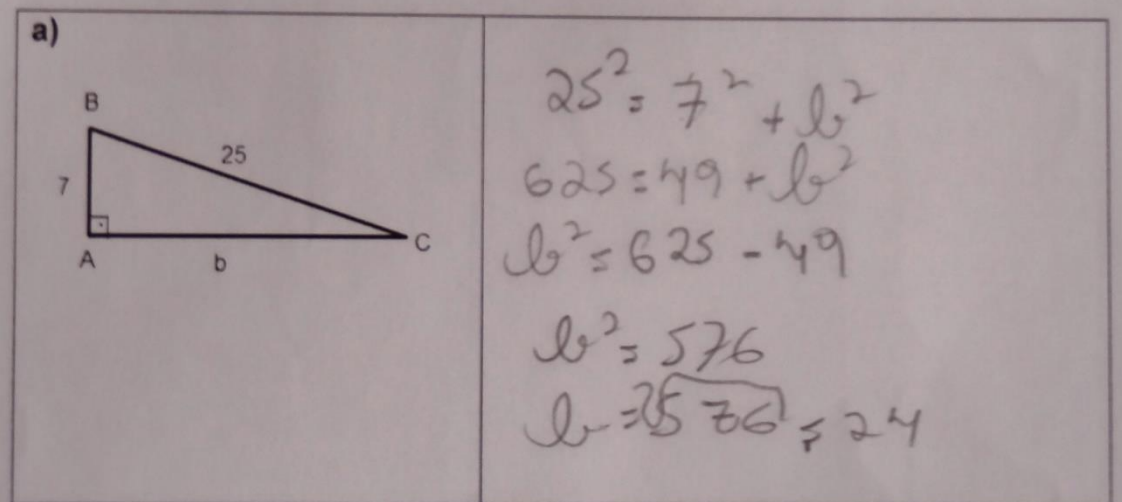 a)
B
25
7
A
b
C
25² = 7² + b²
625 = 49 + b²
b² = 625 - 49
b² = 576
b = ²√576 = 24